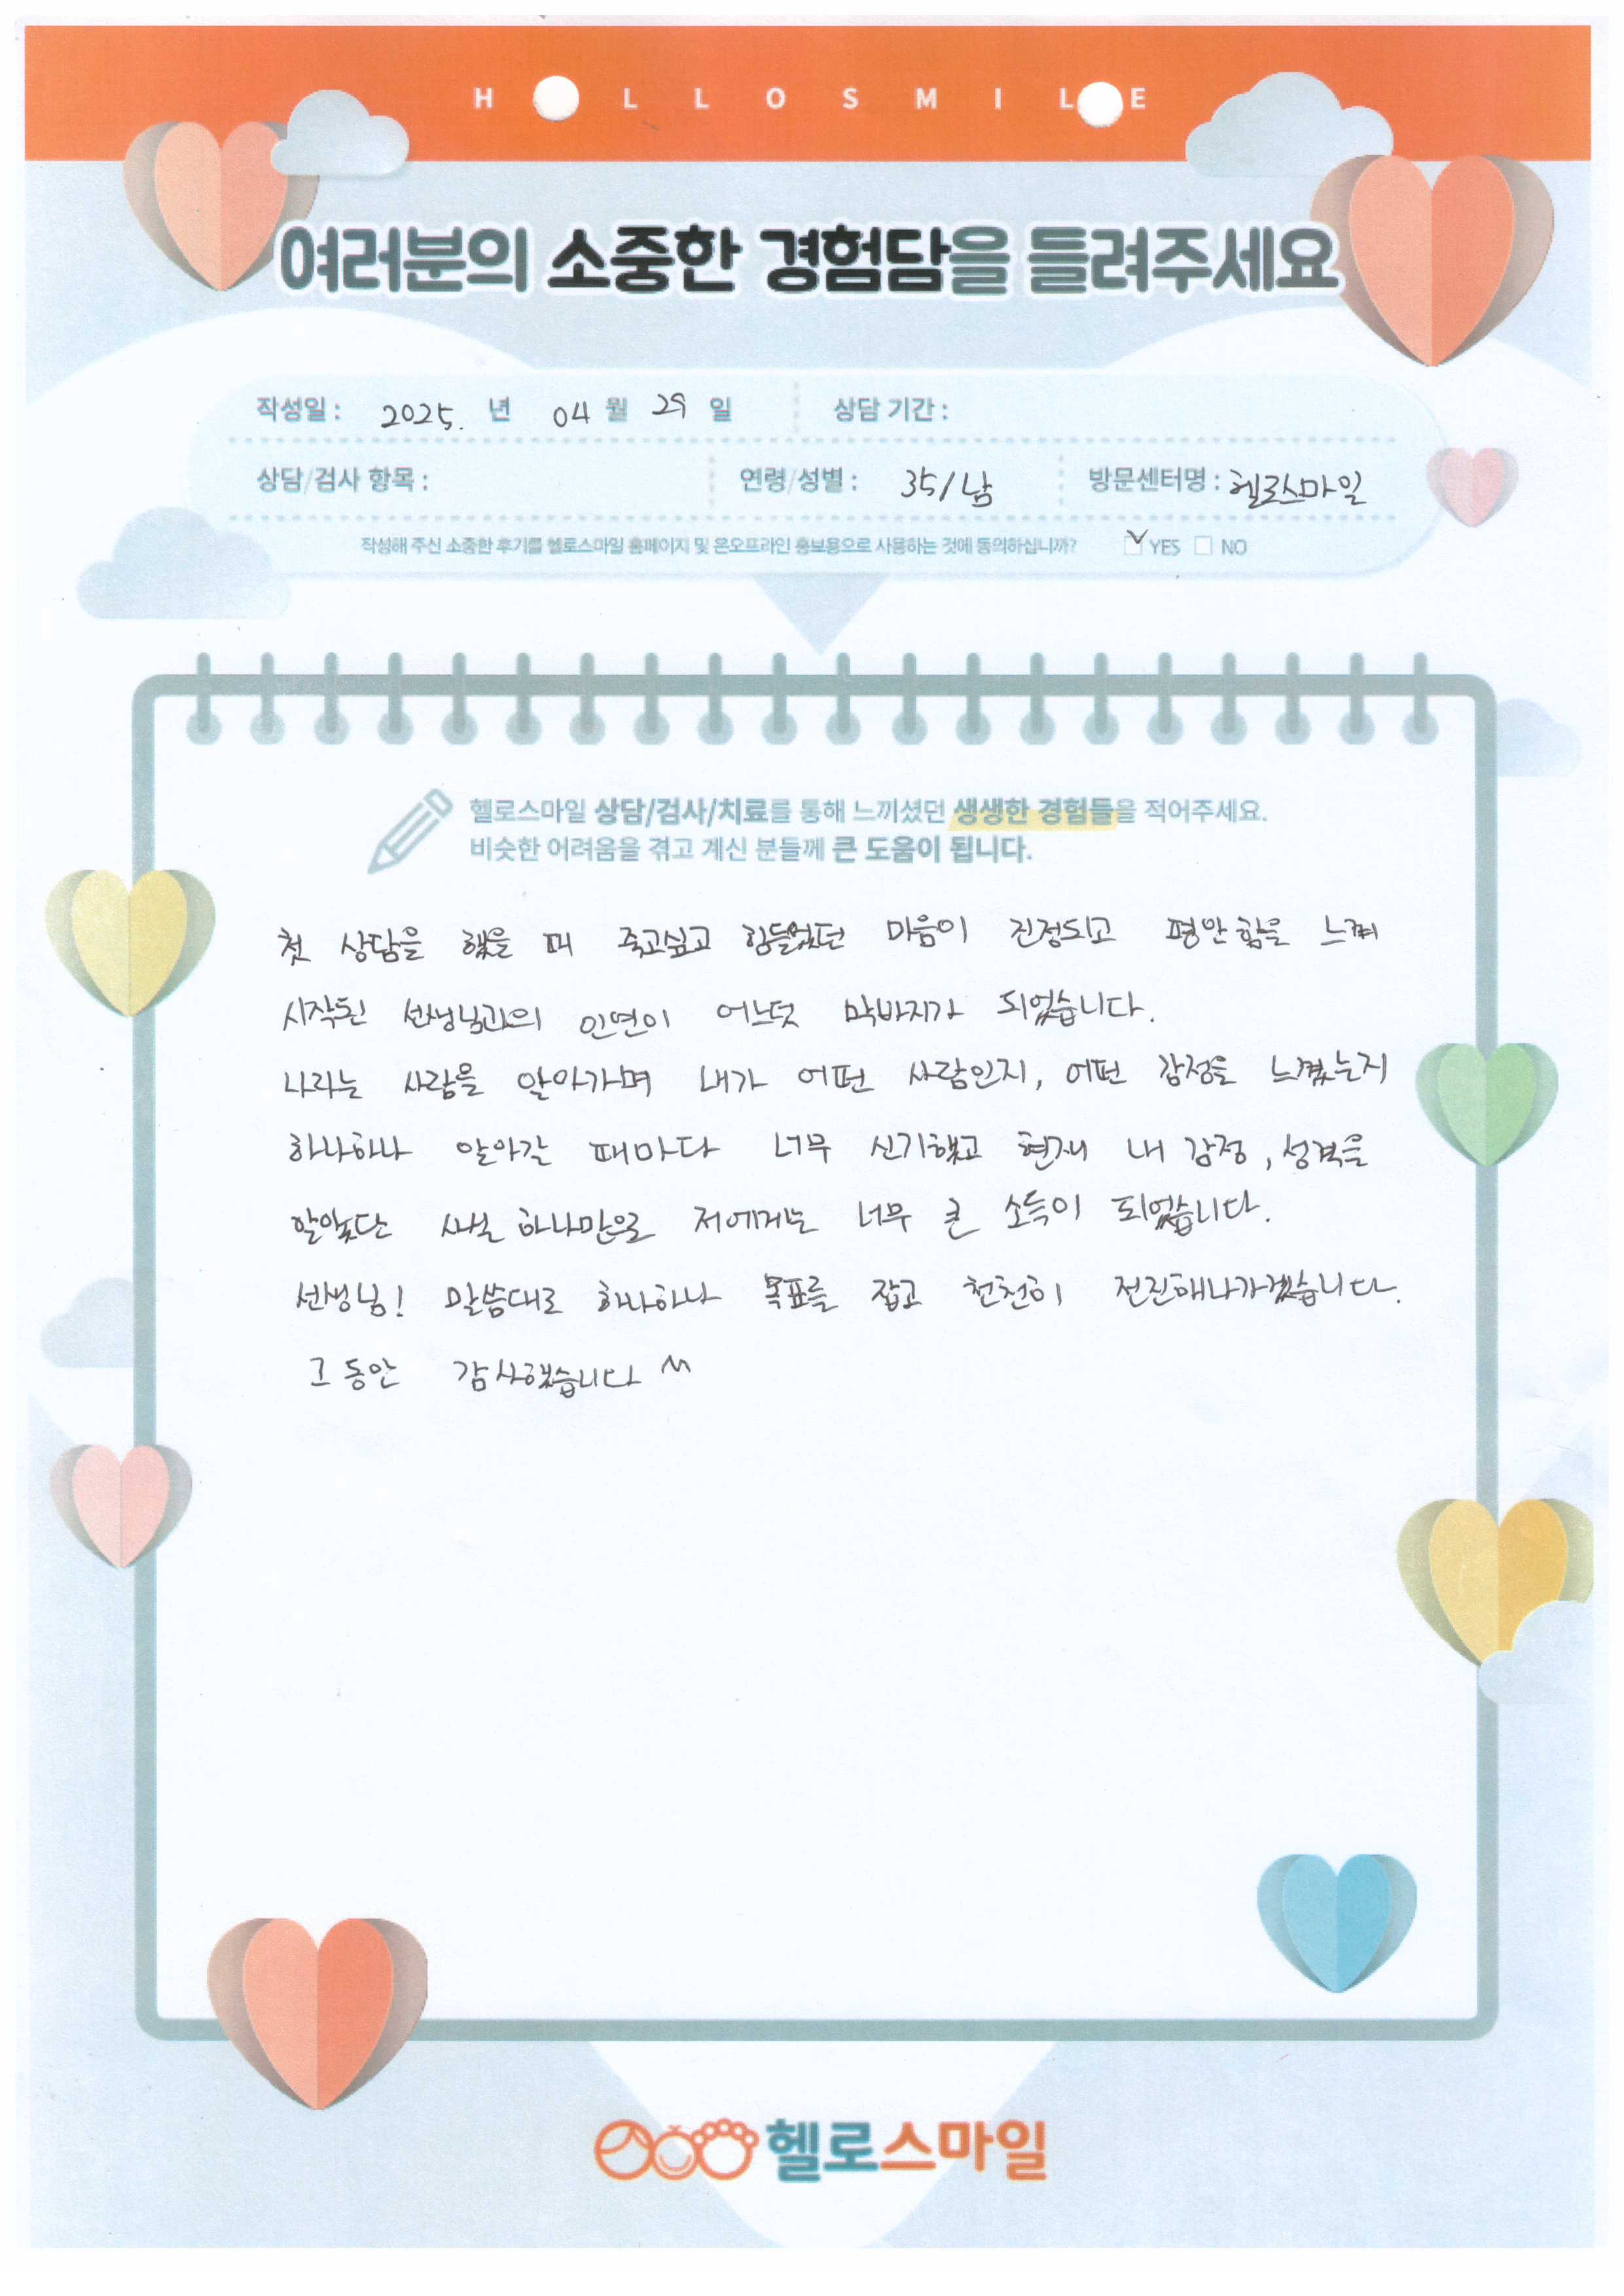 H LLOSMILE
여러분의 소중한 경험담을 들려주세요
작성일 : 2025. 년 04 월 29 일 상담 기간 :
상담/검사 항목 : 연령/성별 : 35/남 방문센터명 : 헬로스마일
작성해 주신 소중한 후기를 헬로스마일 홈페이지 및 온오프라인 홍보용으로 사용하는 것에 동의하십니까? YES NO
헬로스마일 상담/검사/치료를 통해 느끼셨던 생생한 경험들을 적어주세요.
비슷한 어려움을 겪고 계신 분들께 큰 도움이 됩니다.
첫 상담을 했을 때 죽고싶고 힘들었던 마음이 진정되고 평안함을 느껴
시작된 선생님과의 인연이 어느덧 막바지가 되었습니다.
나라는 사람을 알아가며 내가 어떤 사람인지, 어떤 감정을 느꼈는지
하나하나 알아갈 때마다 너무 신기했고 현재 내 감정, 성격을
알았단 사실 하나만으로 저에게는 너무 큰 소득이 되었습니다.
선생님! 말씀대로 하나하나 목표를 잡고 천천히 전진해나가겠습니다.
그동안 감사했습니다 ^^
헬로스마일